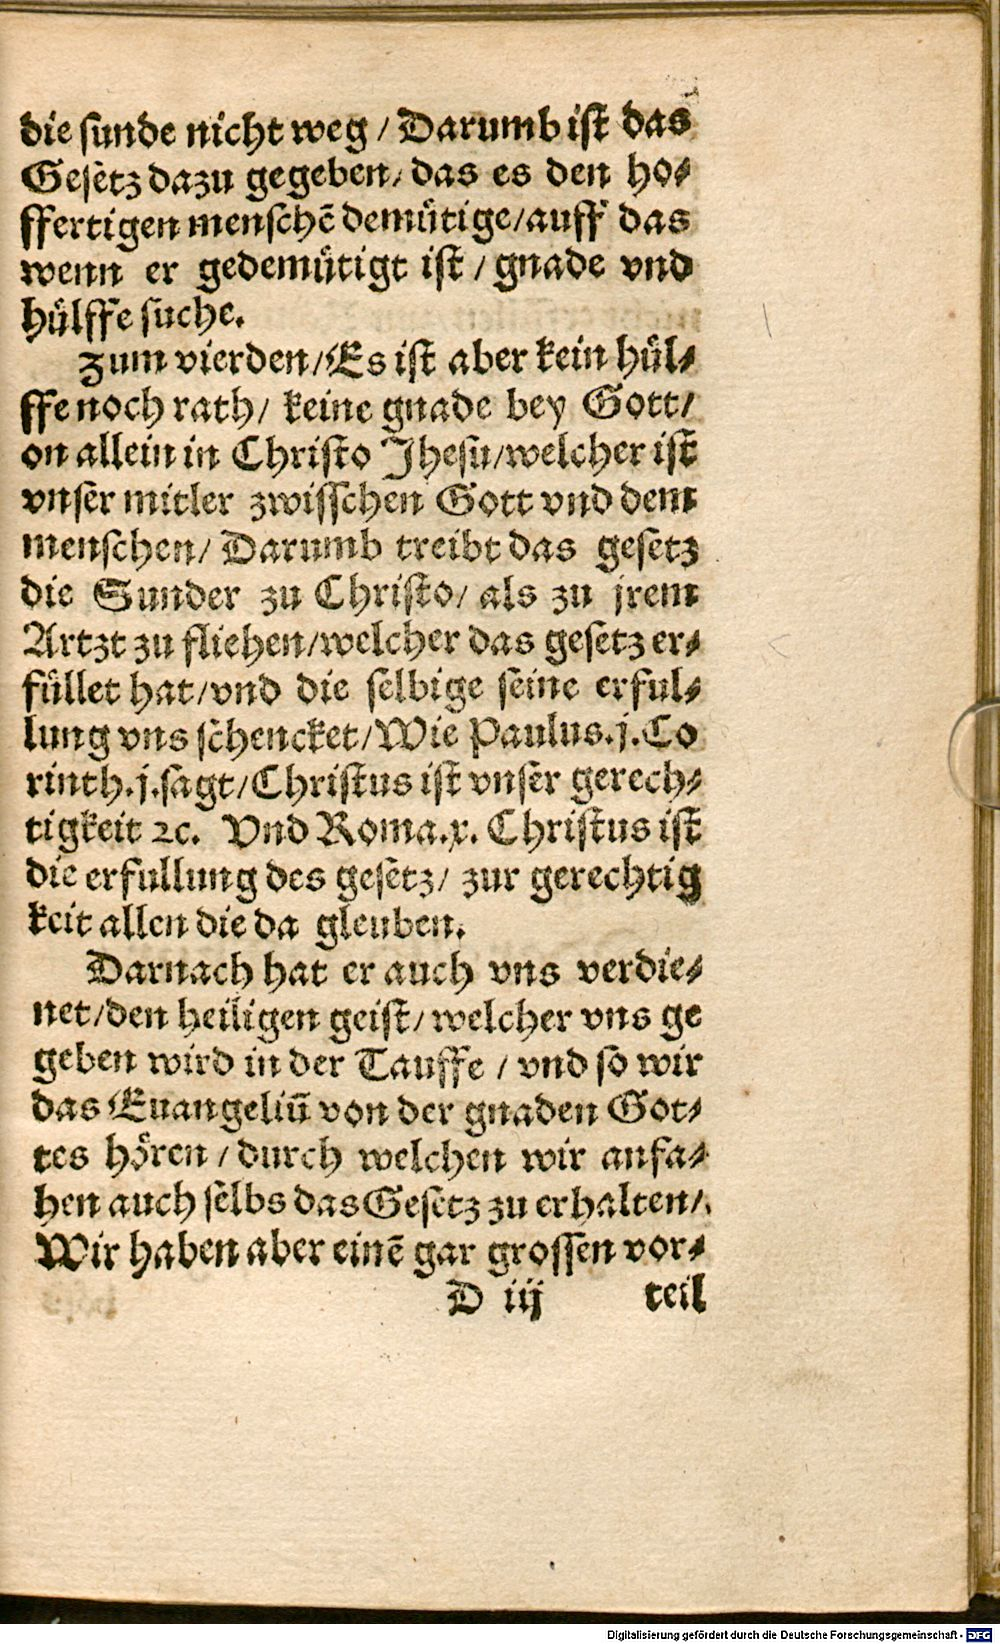 die sunde nicht weg / Darumb ist das
Gesetz dazu gegeben / das es den ho⸗
ffertigen menschẽ demütige / auff das
wenn er gedemütigt ist / gnade vnd
hülffe suche.
Zum vierden / Es ist aber kein hül⸗
ffe noch rath / keine gnade bey Gott /
on allein in Christo Jhesu / welcher ist
vnser mitler zwisschen Gott vnd dem
menschen / Darumb treibt das gesetz
die Sunder zu Christo / als zu jrem
Artzt zu fliehen / welcher das gesetz er⸗
füllet hat / vnd die selbige seine erful⸗
lung vns schencket / Wie Paulus .j. Co
rinth. j. sagt / Christus ist vnser gerech⸗
tigkeit ꝛc. Vnd Roma. x. Christus ist
die erfullung des gesetz / zur gerechtig
keit allen die da gleuben.
Darnach hat er auch vns verdie⸗
net / den heiligen geist / welcher vns ge
geben wird in der Tauffe / vnd so wir
das Euangeliũ von der gnaden Got⸗
tes hören / durch welchen wir anfa⸗
hen auch selbs das Gesetz zu erhalten /
Wir haben aber einẽ gar grossen vor⸗
D iij teil
Digitalisierung gefördert durch die Deutsche Forschungsgemeinschaft - DFG